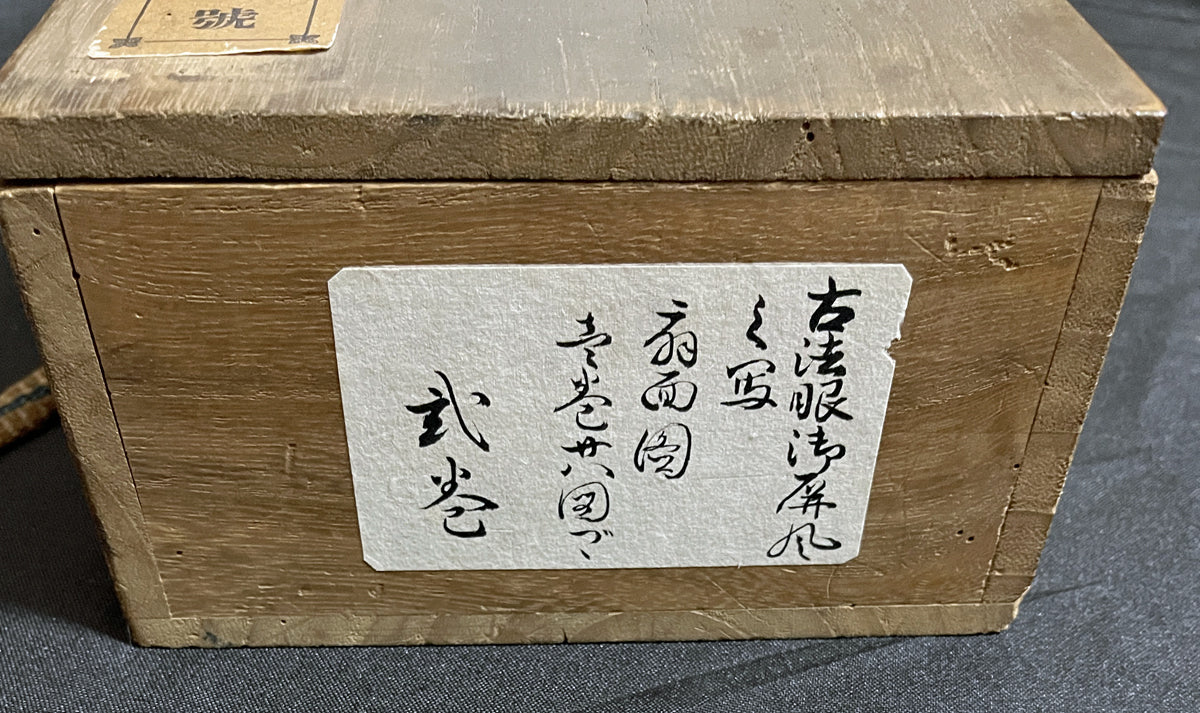 號
古法眼御屏風
之写
扇面図
壱巻廿八図ヅヽ
弐巻